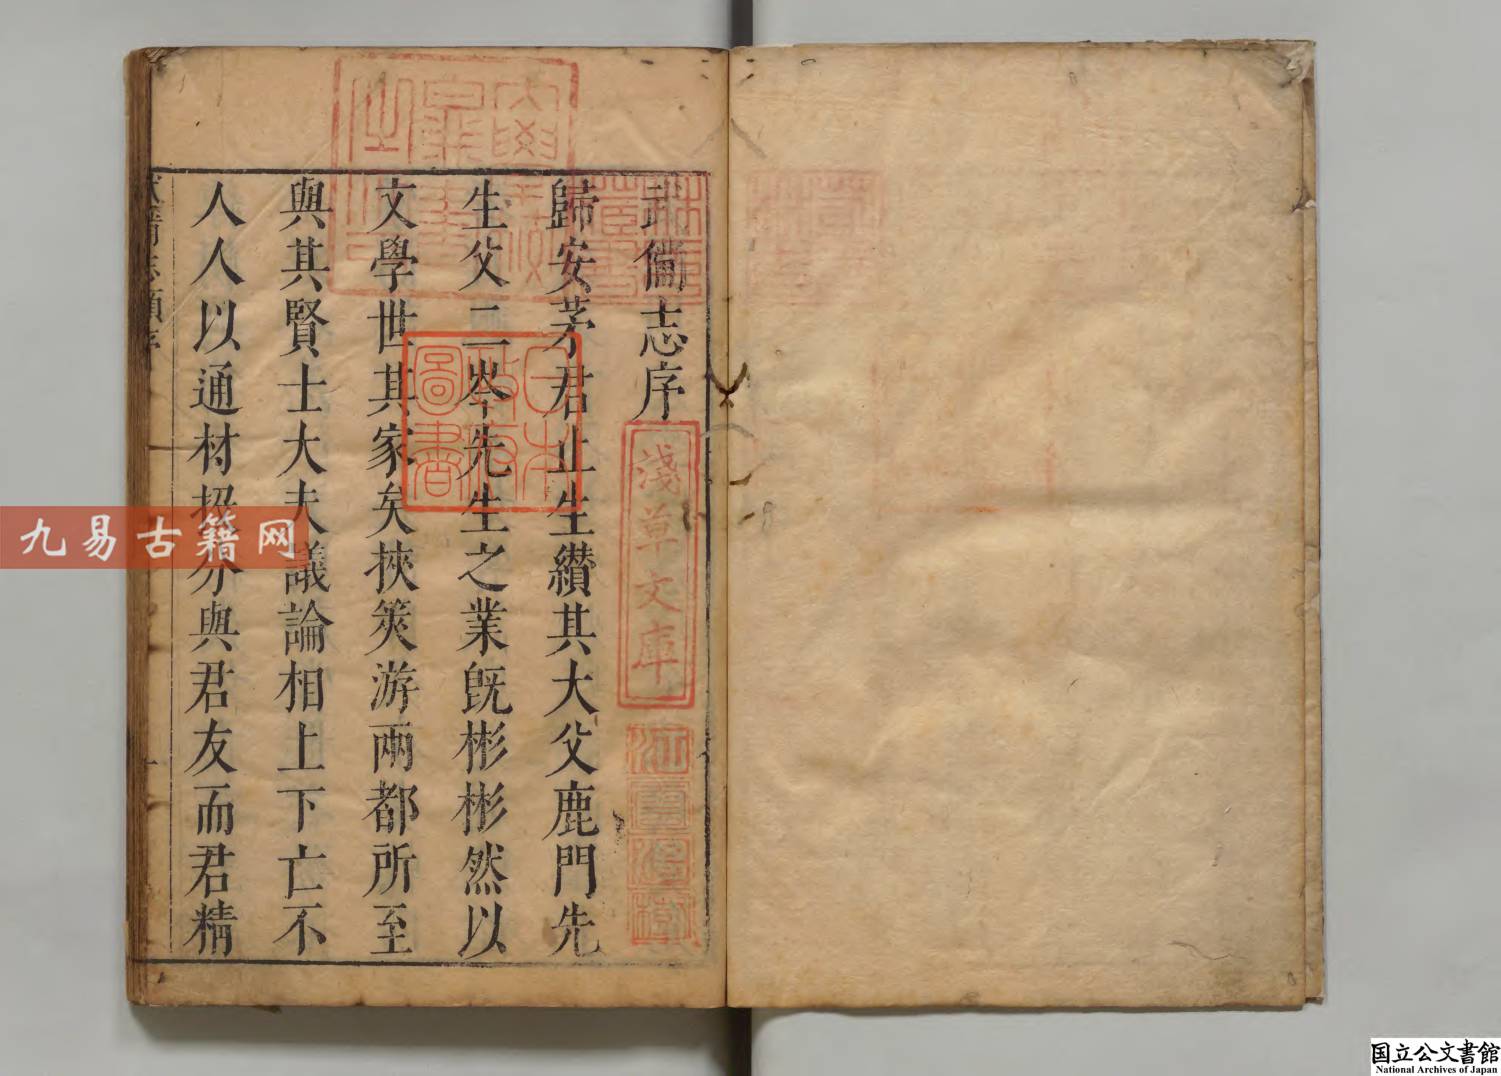 武備志序
歸安茅君止生纉其大父鹿門先
生父二岑先生之業既彬彬然以
文學世其家矣挾筴游兩都所至
與其賢士大夫議論相上下亡不
人人以通材 分與君友而君精
淺草文庫
日本政府圖書
林氏藏書
江雲渭樹
九易古籍网
国立公文書館
National Archives of Japan